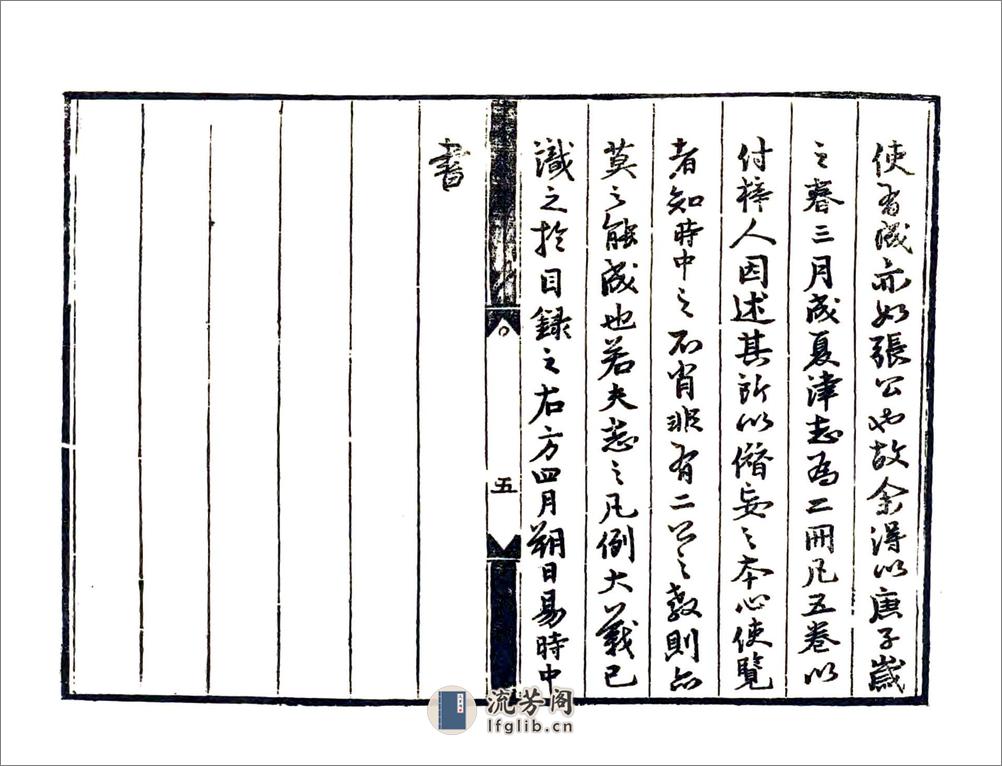 使有成亦如張公也故余得以庚子歲
之春三月成夏津志為二冊凡五卷以
付梓人因述其所以僭妄之本心使覽
者知時中之不肖非有二公之教則亦
莫之能成也若夫志之凡例大義已
識之於目錄之右方四月朔日易時中
書
五
流芳阁
lfglib.cn